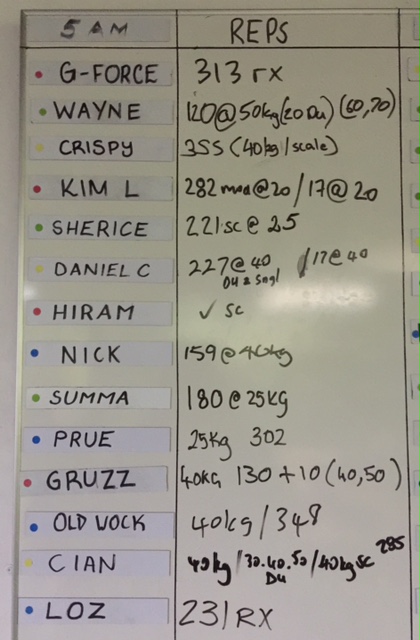 5 AM REPS
G-FORCE 313 rx
WAYNE 120@50kg(20Du)(60,70)
CRISPY 355 (40kg/scale)
KIM L 282 mod@20/17@20
SHERICE 221sc@25
DANIEL C 227@40 /17@40
DU & Sngl
HIRAM ✓ sc
NICK 159@40kg
SUMMA 180@25KG
PRUE 25kg 302
GRUZZ 40KG 130+10(40,50)
OLD WOCK 40kg/348
CIAN 40kg/30.40.50/40kg SC 285
DU
LOZ 231 RX